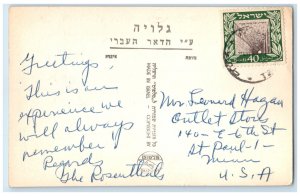 גלויה
ע״י הדאר העברי
ישראל
40
MADE IN ISRAEL
Greetings,
This is an
experience we
will always
remember
Regards
The Rosenthals
Mrs Leonard Hagan
Outlet Store
140-E-6th St
St. Paul-1-
Minn
U.S.A